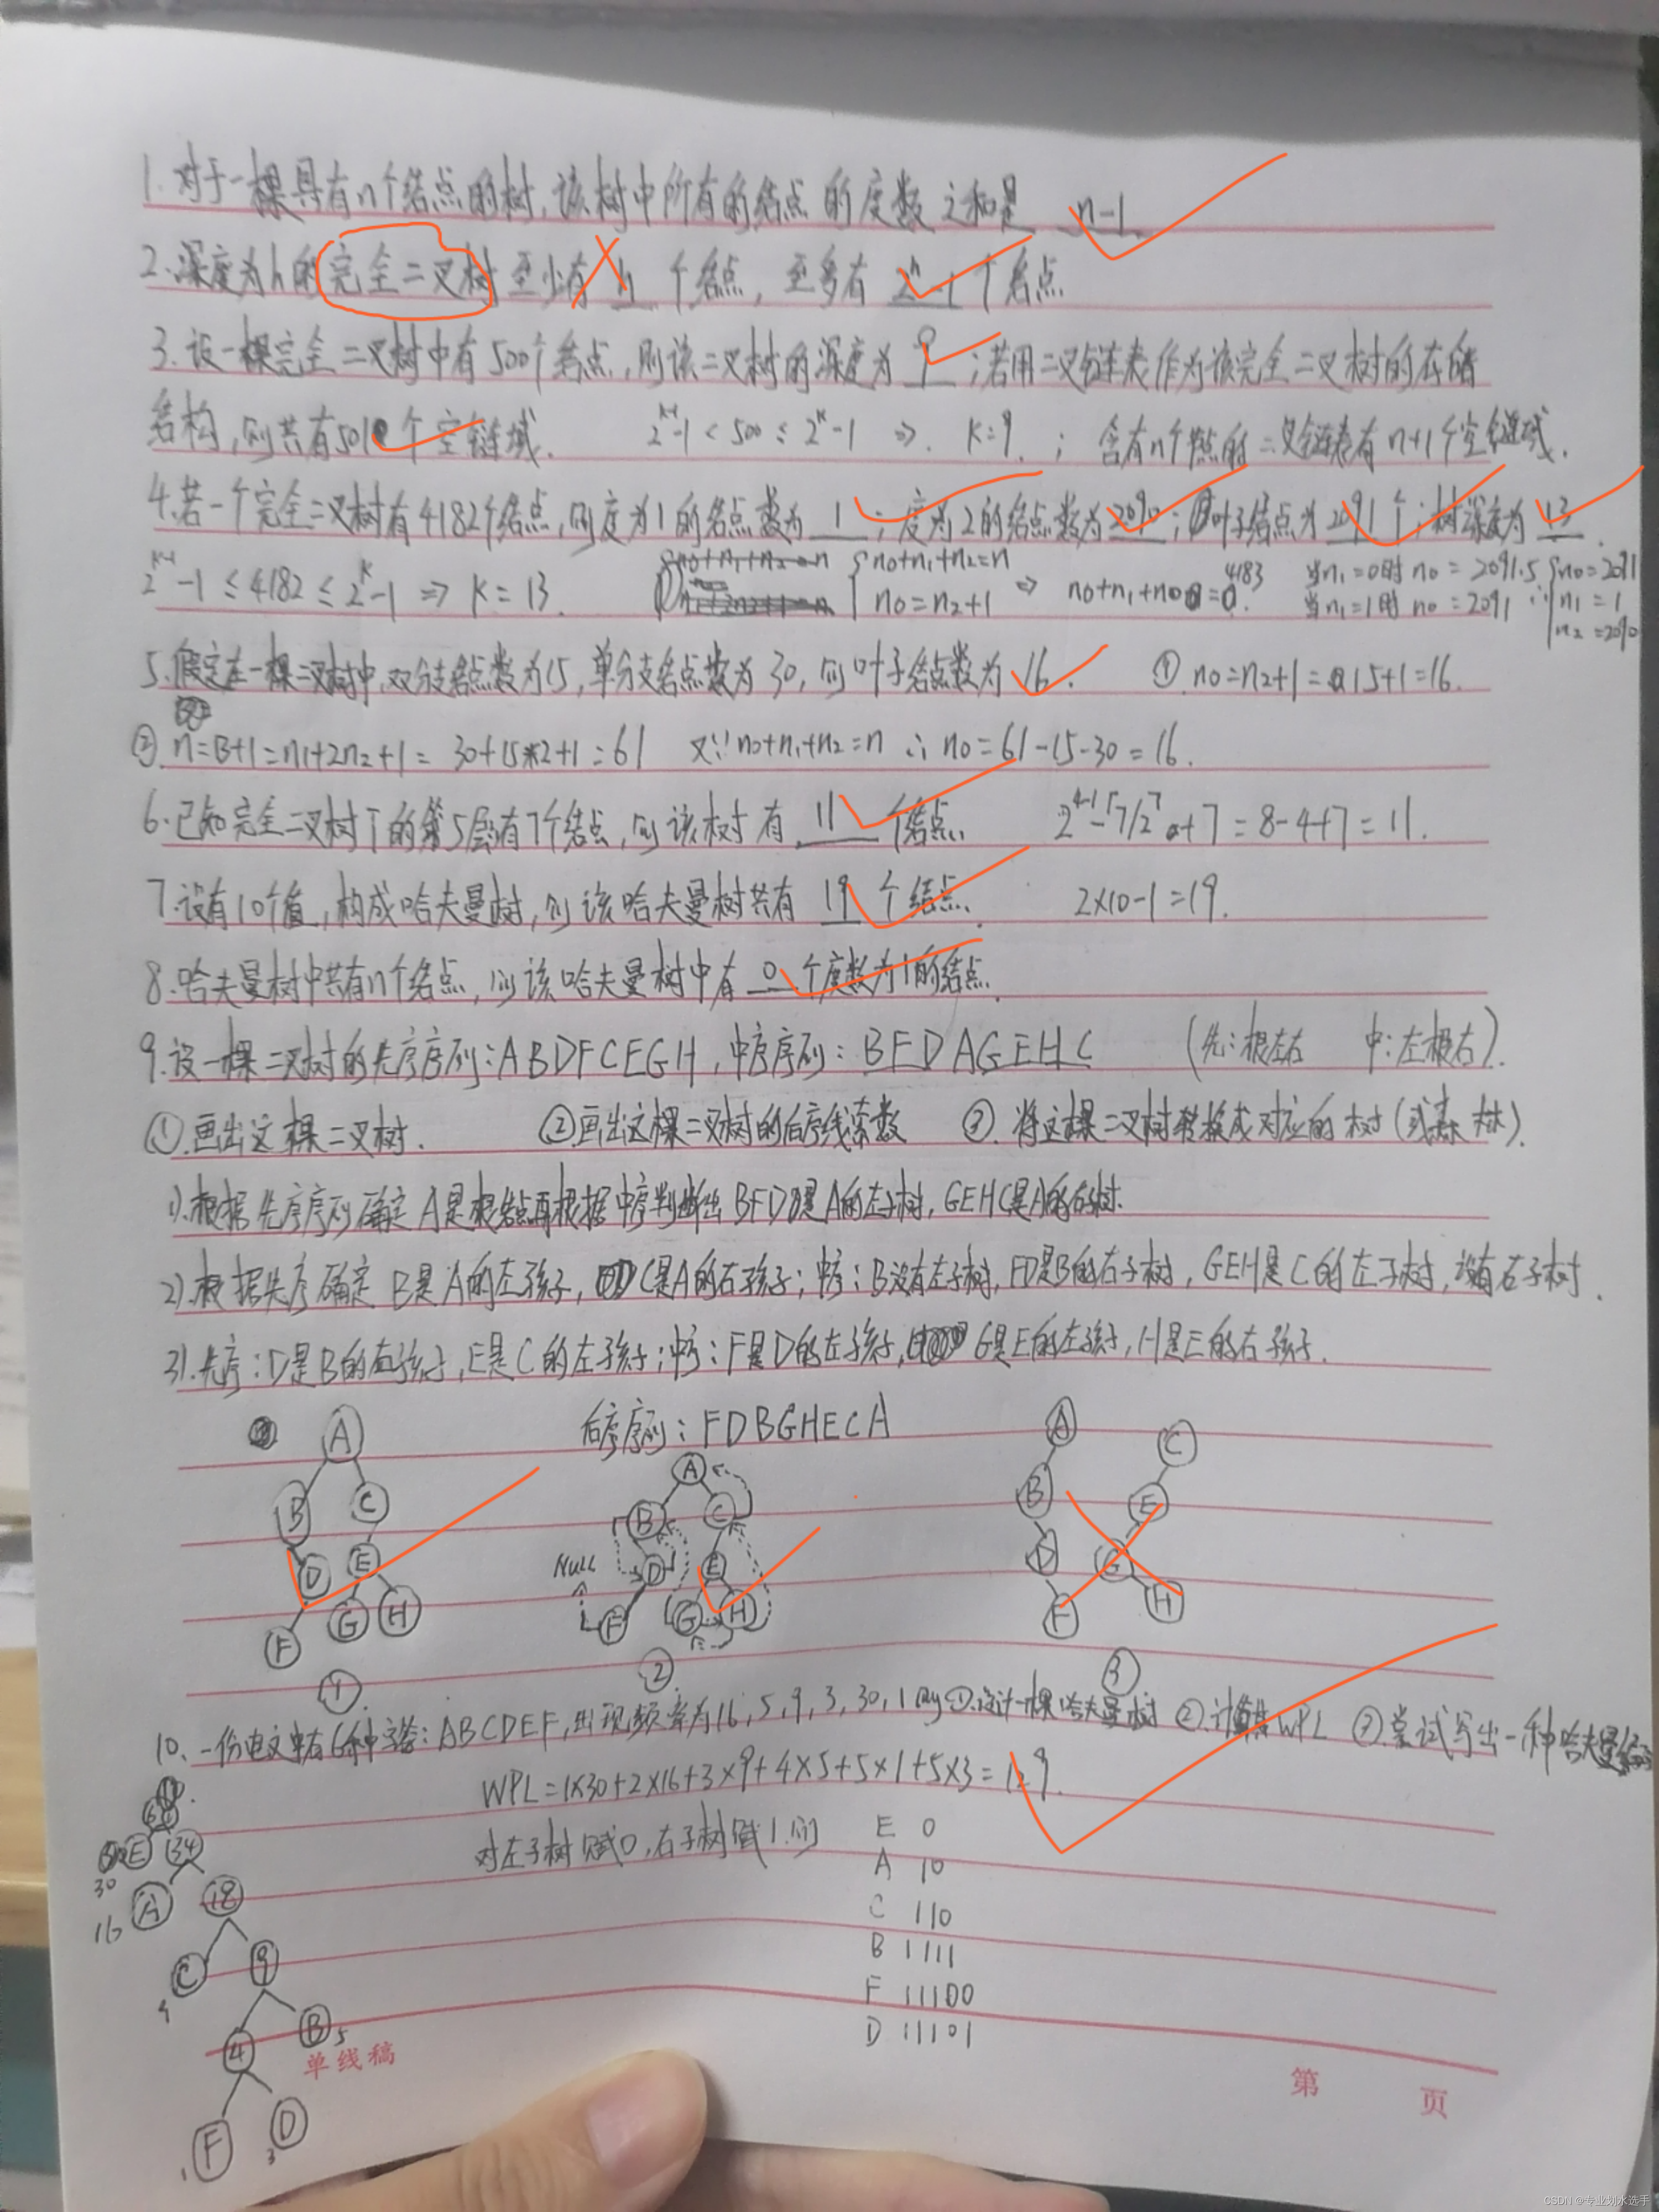 1.对于一棵具有n个结点的树,该树中所有的结点的度数之和是 n-1
2.深度为h的完全二叉树至少有 h 个结点,至多有 2^h-1 个结点
3.设一棵完全二叉树中有500个结点,则该二叉树的深度为 9 ;若用二叉链表作为该完全二叉树的存储
结构,则共有501个空链域. 2^(k-1)-1 < 500 ≤ 2^k-1 ⇒ k=9. ; 含有n个结点的二叉链表有n+1个空链域.
4.若一个完全二叉树有4182个结点,则度为1的结点数为 1 ;度为2的结点数为 2090 ;叶子结点为 2091 个;树深度为 13 .
2^(k-1)-1 ≤ 4182 ≤ 2^k-1 ⇒ k=13. { n0+n1+n2=n ⇒ n0+n1+n0=4183 当n1=0时 n0=2091.5 { n0=2091
n0=n2+1 当n1=1时 n0=2091 ∴ n1=1
n2=2090
5.假定在一棵二叉树中,双分支结点数为15,单分支结点数为30,则叶子结点数为 16. ① n0=n2+1=15+1=16.
② n=B+1=n1+2n2+1= 30+15*2+1=61 又∵n0+n1+n2=n ∴ n0=61-15-30=16.
6.已知完全二叉树T的第5层有7个结点,则该树有 11 个结点. 2^(4-1)-⌈7/2⌉+7=8-4+7=11.
7.设有10个值,构成哈夫曼树,则该哈夫曼树共有 19 个结点. 2×10-1=19.
8.哈夫曼树中共有n个结点,则该哈夫曼树中有 0 个度数为1的结点.
9.设一棵二叉树的先序序列:ABDFCEGH,中序序列:BFDAGEHC (先:根左右 中:左根右).
①.画出这棵二叉树. ②画出这棵二叉树的后序线索数 ③.将这棵二叉树转换成对应的树(或森林).
1).根据先序序列确定A是根结点再根据中序判断出BFD是A的左子树,GEHC是A的右子树.
2).根据先序确定B是A的左孩子,C是A的右孩子;中序:B没有左子树,FD是B的右子树,GEH是C的左子树,没有右子树.
3).先序:D是B的右孩子,E是C的左孩子;中序:F是D的左孩子,G是E的左孩子,H是E的右孩子.
后序序列:FDBGHECA
A B C D E G H F ①
A B C Null D E F G H ②
A C B E D G F H ③
10.一份电文中有6种字符:ABCDEF,出现频率为16,5,9,3,30,1 ①.设计一棵哈夫曼树 ②.计算其WPL ③.尝试写出一种哈夫曼
WPL=1×30+2×16+3×9+4×5+5×1+5×3=129.
对左子树赋0,右子树赋1.则
E 0
A 10
C 110
B 1111
F 11100
D 11101
E 34
30
A 18
16
C 9
9
4 B 5
F D
1 3
单线稿
第 页
CSDN @专业划水选手